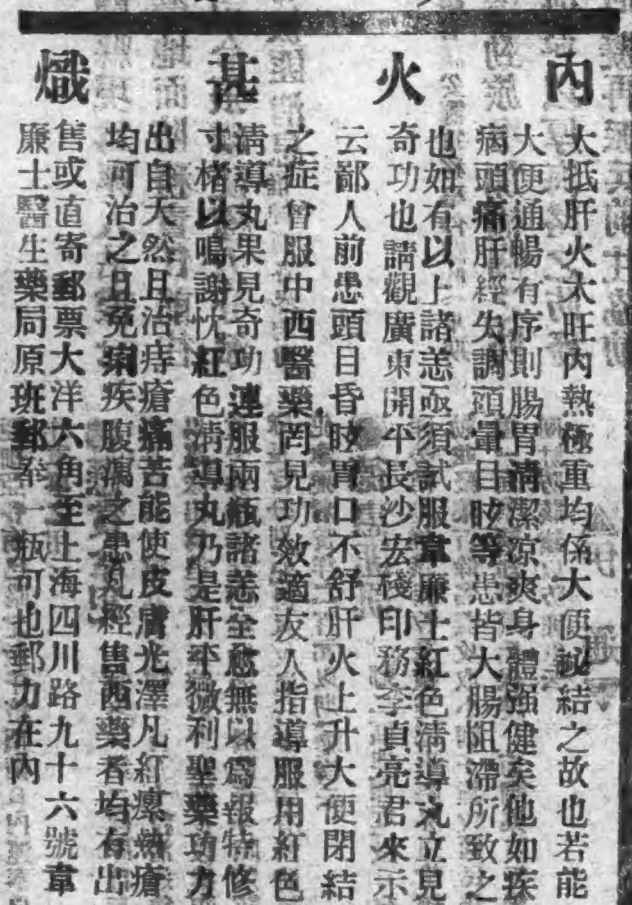 內火甚熾
大抵肝火太旺內熱極重均係大便祕結之故也若能
大便通暢有序則腸胃清潔涼爽身體强健矣他如疾
病頭痛肝經失調頭暈目眩等患皆大腸阻滯所致之
也如有以上諸恙亟須試服韋廉士紅色清導丸立見
奇功也請觀廣東開平長沙宏礎印務李貞亮君來示
云鄙人前患頭目昏眩胃口不舒肝火上升大便閉結
之症曾服中西醫藥罔見功效適友人指導服用紅色
清導丸果見奇功連服兩瓶諸恙全愈無以爲報特修
寸楮以鳴謝忱紅色清導丸乃是肝平微利聖藥功力
出自天然且治痔瘡痛苦能使皮膚光澤凡紅瘰熱瘡
均可治之且免痢疾腹瀉之患凡經售西藥者均有出
售或直寄郵票大洋六角至上海四川路九十六號韋
廉士醫生藥局原班郵奉一瓶可也郵力在內